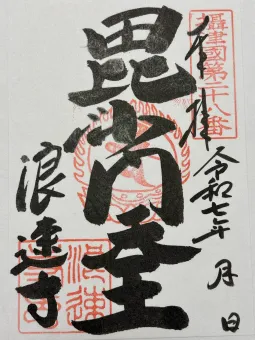 攝津國第二十八番
奉拝 令和七年 月 日
毘沙門堂
浪速寺
浪速